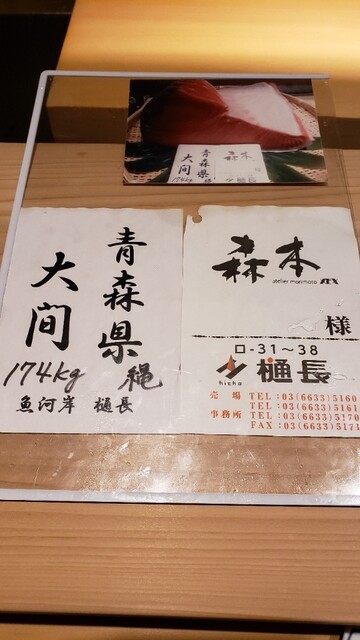 森本
青森県
大間
174kg
樋長
青森県
大間
174kg
縄
魚河岸 樋長
森本
atelier morimoto XEX
様
ロ-31〜38
hicho
樋長
売場 TEL:03(6633)5160
TEL:03(6633)5161
事務所 TEL:03(6633)5170
FAX:03(6633)5171